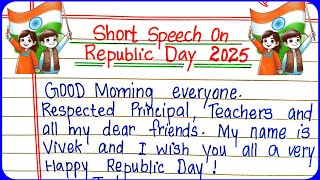 Short Speech On
Republic Day 2025
GOOD Morning everyone.
Respected Principal, Teachers and
all my dear friends. My name is
Vivek and I wish you all a very
Happy Republic Day !